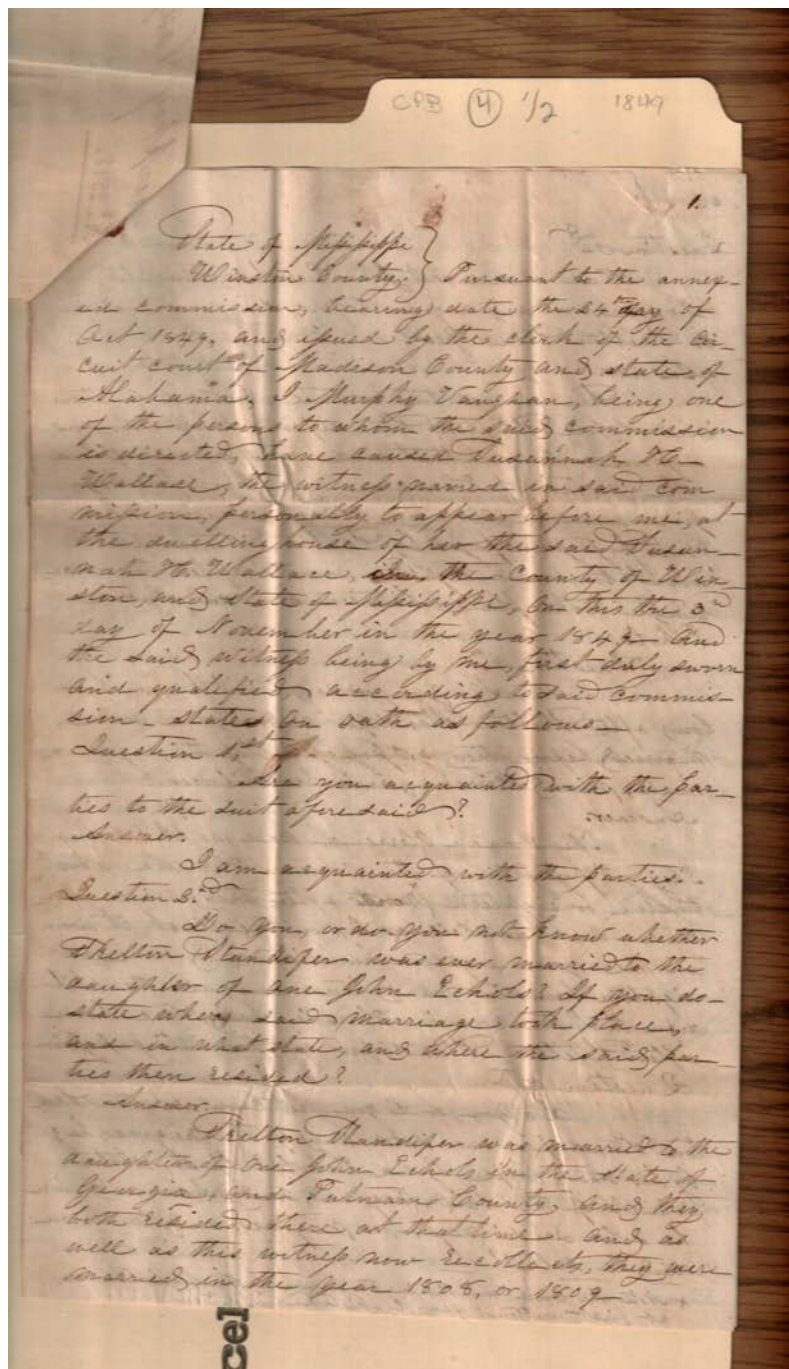 CPB 4 1/2 1849
1.
State of Mississippi
Winston County } Pursuant to the annex-
ed commission, bearing date the 24th day of
Oct 1849, and issued by the clerk of the cir-
cuit court of Madison County and state of
Alabama, I Murphy Vaughan, being one
of the persons to whom the said commission
is directed, have caused Susannah H.
Wallace, the witness named in said com
mission, personally to appear before me, at
the dwelling house of her the said Susan-
nah H. Wallace, in the County of Win-
ston, and State of Mississippi, on this the 3rd
day of November in the year 1849 and
the said witness being by me, first duly sworn
and qualified according to said commis-
sion - states on oath as follows -
Question 1st
Are you acquainted with the par-
ties to the suit aforesaid?
Answer.
I am acquainted with the parties.
Question 2nd
Do you, or do you not know whether
Skelton Standifer was ever married to the
daughter of one John Echols? If you do-
state where said marriage took place,
and in what state, and where the said par-
ties then resided?
Answer.
Skelton Standifer was married to the
daughter of one John Echols in the State of
Georgia, and Putnam County, and they
both resided there at that time. and as
well as this witness now recollects, they were
married in the year 1808, or 1809
cel